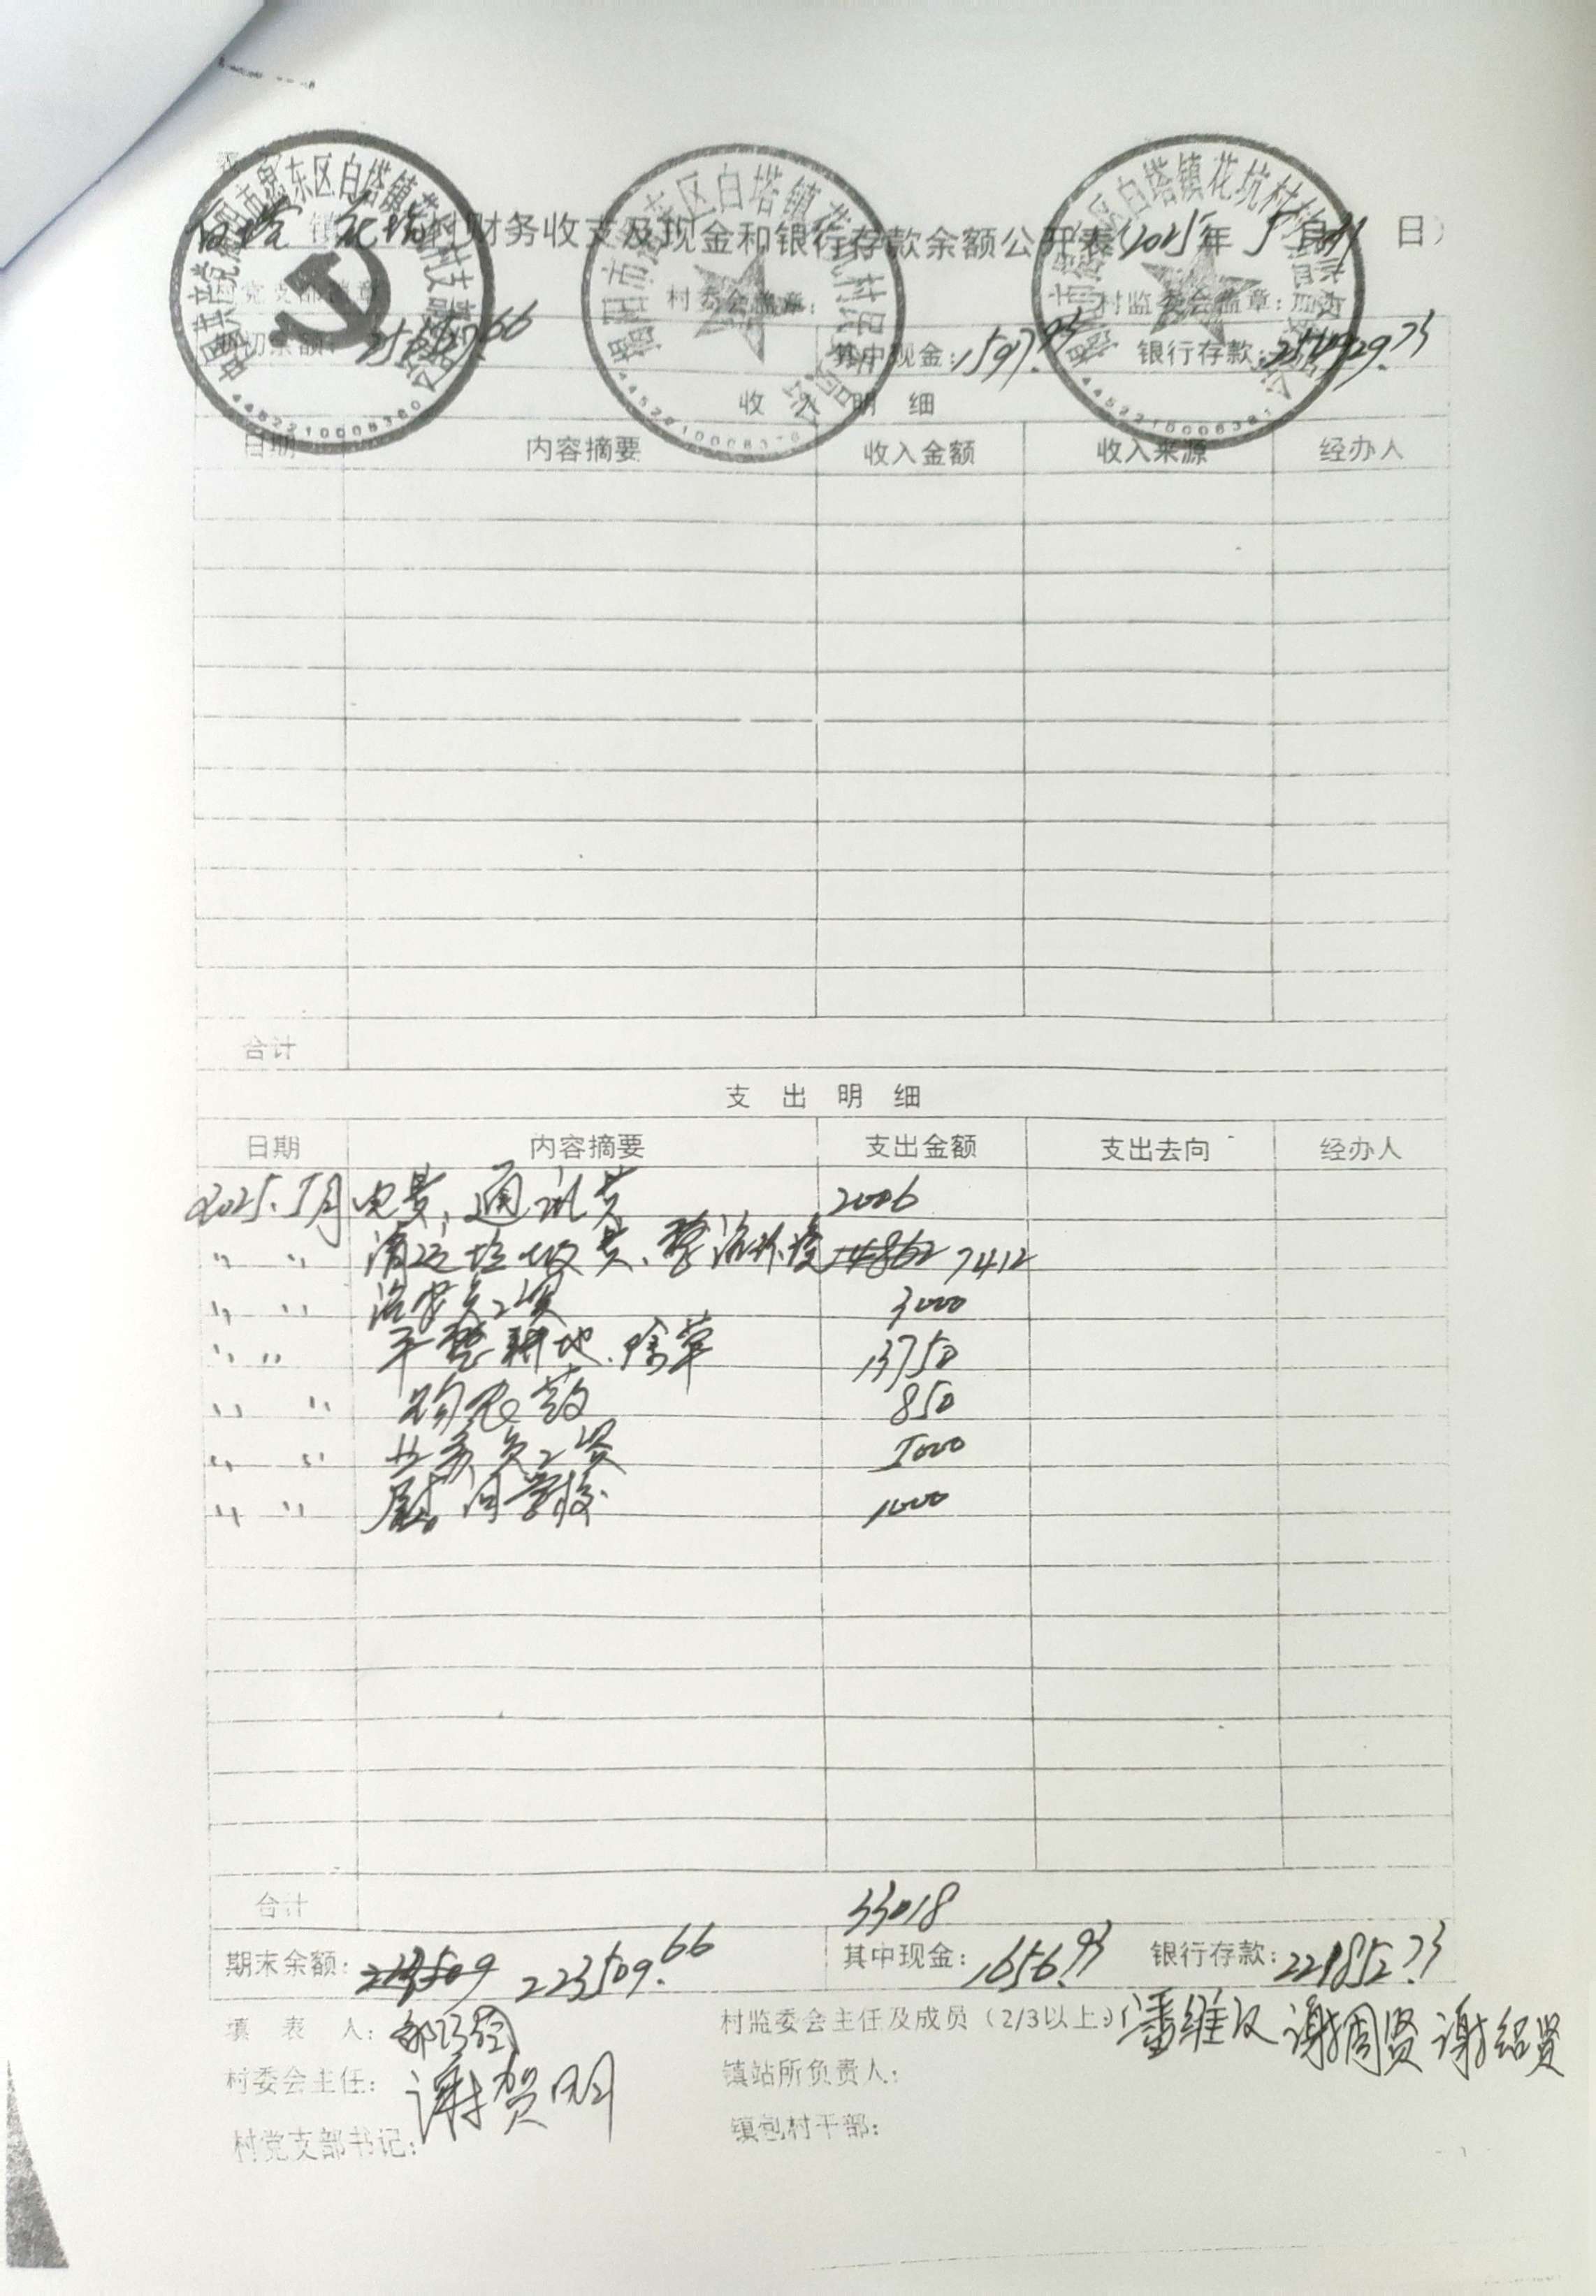 中国共产党揭阳市揭东区白塔镇花坑村支部委员会
揭阳市揭东区白塔镇花坑村民委员会
揭阳市揭东区白塔镇花坑村务监督委员会
白塔 镇 花坑 村财务收支及现金和银行存款余额公开表(2025年 5月31 日)
村党支部盖章: 村委会盖章: 村监委会盖章:
期初余额: 256527.66 其中现金: 1597.93 银行存款: 254929.73
收 入 明 细
日期 内容摘要 收入金额 收入来源 经办人
合计
支 出 明 细
日期 内容摘要 支出金额 支出去向 经办人
2025.5月 电费,通讯费 2006
〃 〃 清运垃圾费、整治环境 14862 7412
〃 〃 治安员工资 3000
〃 〃 平整耕地.除草 13750
〃 〃 购农药 850
〃 〃 业务员工资 5000
〃 〃 慰问学校 1000
合计 33018
期末余额: 223509 223509.66 其中现金: 1656.93 银行存款: 221852.73
填 表 人:
村监委会主任及成员(2/3以上): 潘维汉 谢周贤 谢绍贤
村委会主任: 谢贺明
镇站所负责人:
村党支部书记:
镇包村干部: